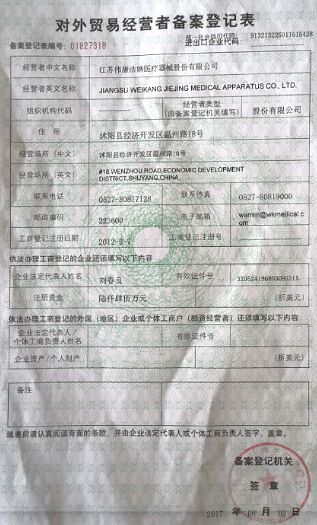 对外贸易经营者备案登记表
备案登记表编号: 01827318
统一社会信用代码:
进出口企业代码:
经营者中文名称 江苏伟康洁婧医疗器械股份有限公司
经营者英文名称 JIANGSU WEIKANG JIEJING MEDICAL APPARATUS CO., LTD.
组织机构代码 -- 经营者类型 (由备案登记机关填写) 股份有限公司
住 所 沭阳县经济开发区温州路18号
经营场所 (中文) 沭阳县经济开发区温州路18号
经营场所 (英文) #18 WENZHOU ROAD,ECONOMIC DEVELOPMENT
DISTRICT,SHUYANG,CHINA
联系电话 0527-80817128 联系传真 0527-80819000
邮政编码 223600 电子邮箱 warren@wkmedical.c
om
工商登记注册日期 2012-2-7 工商登记注册号
依法办理工商登记的企业还须填写以下内容
企业法定代表人姓名 刘春良 有效证件号
注册资金 陆仟肆佰万元 (折美元)
依法办理工商登记的外国 (地区) 企业或个体工商户 (独资经营者) 还须填写以下内容
企业法定代表人/
个体工商负责人姓名 有效证件号
企业资产/个人财产 (折美元)
备注
填表前请认真阅读背面的条款, 并由企业法定代表人或个体工商负责人签字、盖章。
备案登记机关
签 章
2017 年 08 月 02 日